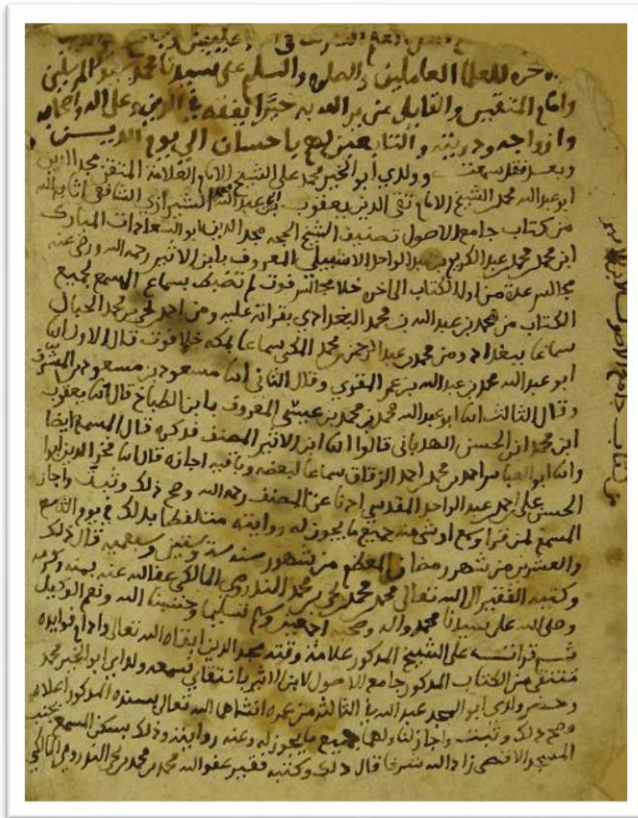 خره للعلما العاملين والصلوه والسلم على سيدنا محمد سيد المرسلين
وامام المتقين والقايل من يرد الله به خيرا يفقهه في الدين وعلى اله واصحابه
وازواجه وذريته والتابعين لهم باحسان الى يوم الديـــن
وبعد فقد سمعت وولدي ابو الخير محمد على الشيخ الامام العلامة المتقن مجد الدين
ابو عبد الله محمد بن الشيخ الامام تقي الدين يعقوب الشيرازي الشافعي اثابه الله
من كتاب جامع الاصول تصنيف الشيخ الحجه مجد الدين ابو السعادات المبارك
ابن محمد بن محمد بن عبد الكريم بن عبد الواحد المعروف بابن الاثير رحمه الله ورضى عنه
مجالس عدة من اول الكتاب الى اخره خلا مجالس فوت لم تضبط بسماع المسمع لجميع
الكتاب من محمد بن عبد الله بن محمد البغدادي بقراته عليه ومن احمد بن محمد
سماعا ببغداد ومن محمد بن عبد الرحمن بن محمد المكي سماعا بمكه خلا فوت قال الاول انا
ابو عبد الله محمد بن عبد الله بن عمر المقري وقال الثاني انا مسعود بن مسعود بن
وقال الثالث انا ابو عبد الله محمد بن محمد بن المعروف بابن الطباخ قال انا يعقوب
ابن محمد بن الحسن الهدباني قالوا انا ابن الاثير المصنف فذكره قال المسمع ايضا
وانا ابو العباس احمد بن محمد بن احمد الزقاق سماعا لبعضه وباقيه اجازه قال انا فخر الدين ابو
الحسن علي بن احمد بن عبد الواحد المقدسي اذنا عن المصنف رحمه الله وصح ذلك وثبت واجاز
المسمع لمن قرا وسمع منه جميع ما يجوز له روايته متلفظا بذلك في يوم التاسع
والعشرين من شهر رمضان المعظم من شهور سنة ستة وستين وسبعميه قال ذلك
وكتبه الفقير الى الله تعالى محمد بن محمد بن يحيى بن محمد الندرومي المالكي عفا الله عنه بمنه وكرمه
وصلى الله على سيدنا محمد واله وصحبه اجمعين وسلم تسليما وحسبنا الله ونعم الوكيل
ثم قراتـــه على الشيخ المذكور علامة وقته مجد الدين ابقاه الله تعالى وادام فوايده
منتقى من الكتاب المذكور جامع الاصول لابن الاثير بانتقاي فسمعه ولداي ابو الخير محمد
وحضر ولدي ابو المجد عبد الله في الثالثة من عمره انشاهما الله تعالى بسنده المذكور اعلاه
وصح ذلك وثبت واجاز لنا ولهما جميع ما يجوز له وعنه روايته وذلك بسكن المسمع
المسجد الاقصى زاده الله شرفا قال ذلك وكتبه فقير عفو الله محمد بن محمد بن يحيى الندرومي المالكي
من كتاب جامع الاصول لابن الاثير